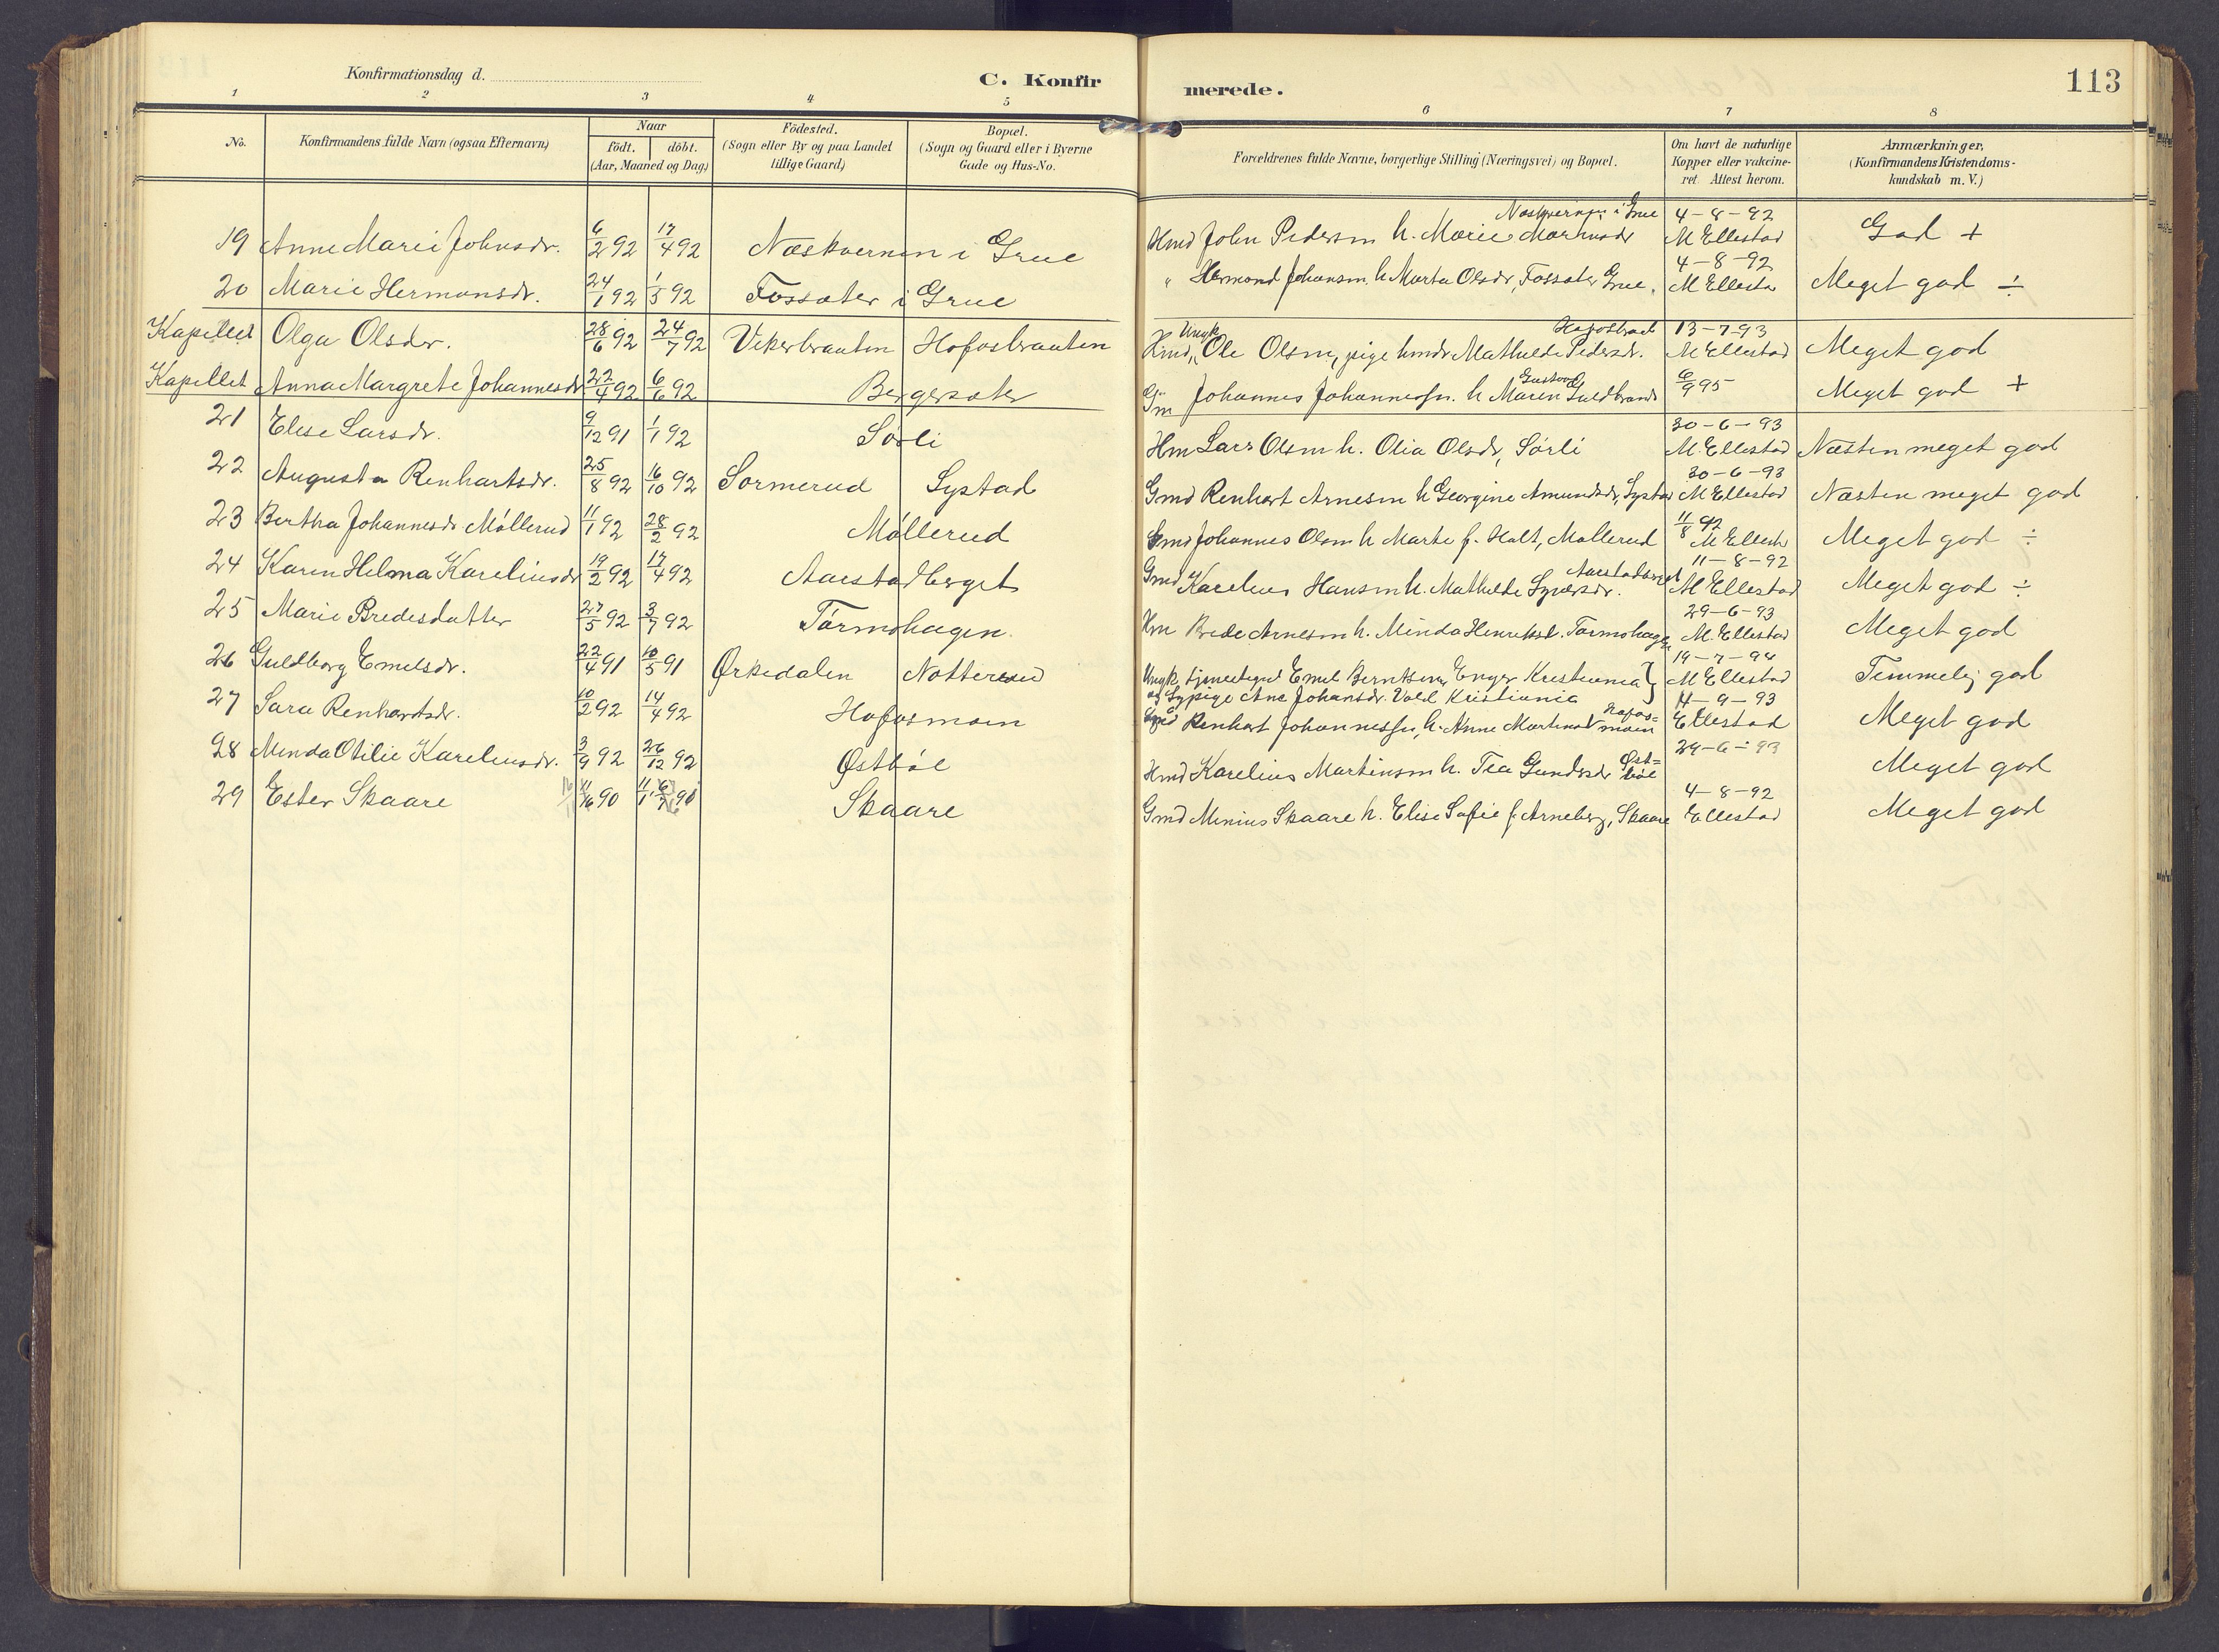 Konfirmationsdag d.
C. Konfirmerede.
113
1 2 3 4 5 6 7 8
No.
Konfirmandens fulde Navn (ogsaa Efternavn)
Naar
födt. döbt.
(Aar, Maaned og Dag)
Födested.
(Sogn eller By og paa Landet
tillige Gaard)
Bopæl.
(Sogn og Gaard eller i Byerne
Gade og Hus-No.
Forældrenes fulde Navne, borgerlige Stilling (Næringsvei) og Bopæl.
Om havt de naturlige
Kopper eller vakcine-
ret. Attest herom.
Anmærkninger,
(Konfirmandens Kristendoms-
kundskab m. V.)
19 Anne Marie Johnsdr. 6/2 92 17/4 92 Næskvernen i Grue Hmd John Pedersen h. Marie 4-8-92 M Ellestad God +
20 Marie Hermansdr. 24/1 92 1/5 92 Fossæter i Grue " Hermand Johansen h Marta Olsdr, Fossæter Grue. 4-8-92 M Ellestad Meget god ÷
Kapellet Olga Olsdr. 28/6 92 24/7 92 Vikerbraaten Hofosbraaten Ungk Ole Olsen, pige Mathilde Pedersdr. 13-7-93 M Ellestad Meget god
Kapellet Anna Margrete Johannesdr 22/4 92 6/6 92 Bergersæter Gm Johannes Johannessen. h Maren Guldbrands 6/9 95 Meget god +
21 Elise Larsdr. 9/12 91 1/1 92 Sörli Hm Lars Olsen h. Olia Olsdr, Sörli 30-6-93 M. Ellestad Næsten meget god
22 Augusta Renhartsdr. 25/8 92 16/10 92 Sormerud Systad Gmd Renhart Arnesen h Georgine Amundsdr, Systad 30-6-93 M Ellestad Næsten meget god
23 Bertha Johannesdr Möllerud 11/1 92 28/2 92 Möllerud Gmd Johannes Olsen h Marte f. Holt, Möllerud 11/8 92 M Ellest Meget god ÷
24 Karen Helma Kareliusdr 19/2 92 17/4 92 Aarstadberget Gmd Karelius Hansen h. Mathilde Syversdr. Aarstadberget 11-8-92 M Ellestad Meget god ÷
25 Marie Bredesdatter 27/5 92 3/7 92 Tormohagen. Hm Brede Arnesen h. Minda Henriksd. Tormohagen 29-6-93 M. Ellestad Meget god
26 Guldborg Emilsdr. 22/4 91 10/5 91 Ørkedalen Notterud Ungk. tjenestegut Emil Berntsen, Enger Kristiania
og Sypige Ane Johansdr. Vold Kristiania 19-7-94 M Ellestad Temmelig god
27 Sara Renhardsdr. 10/2 92 14/4 92 Hofosmoen Renhart Johannessen, h. Anne Hofos=moen 4-9-93 Ellestad Meget god
28 Minda Otilie Kareliusdr. 3/9 92 26/12 92 Østböl Hmd Karelius Martinsen h. Tea Gundersdr Øst=böl 29-6-93 Meget god
29 Ester Skaare 90 Skaare Gmd Minius Skaare h. Elise Sofie f. Arneberg, Skaare 4-8-92 Ellestad Meget god